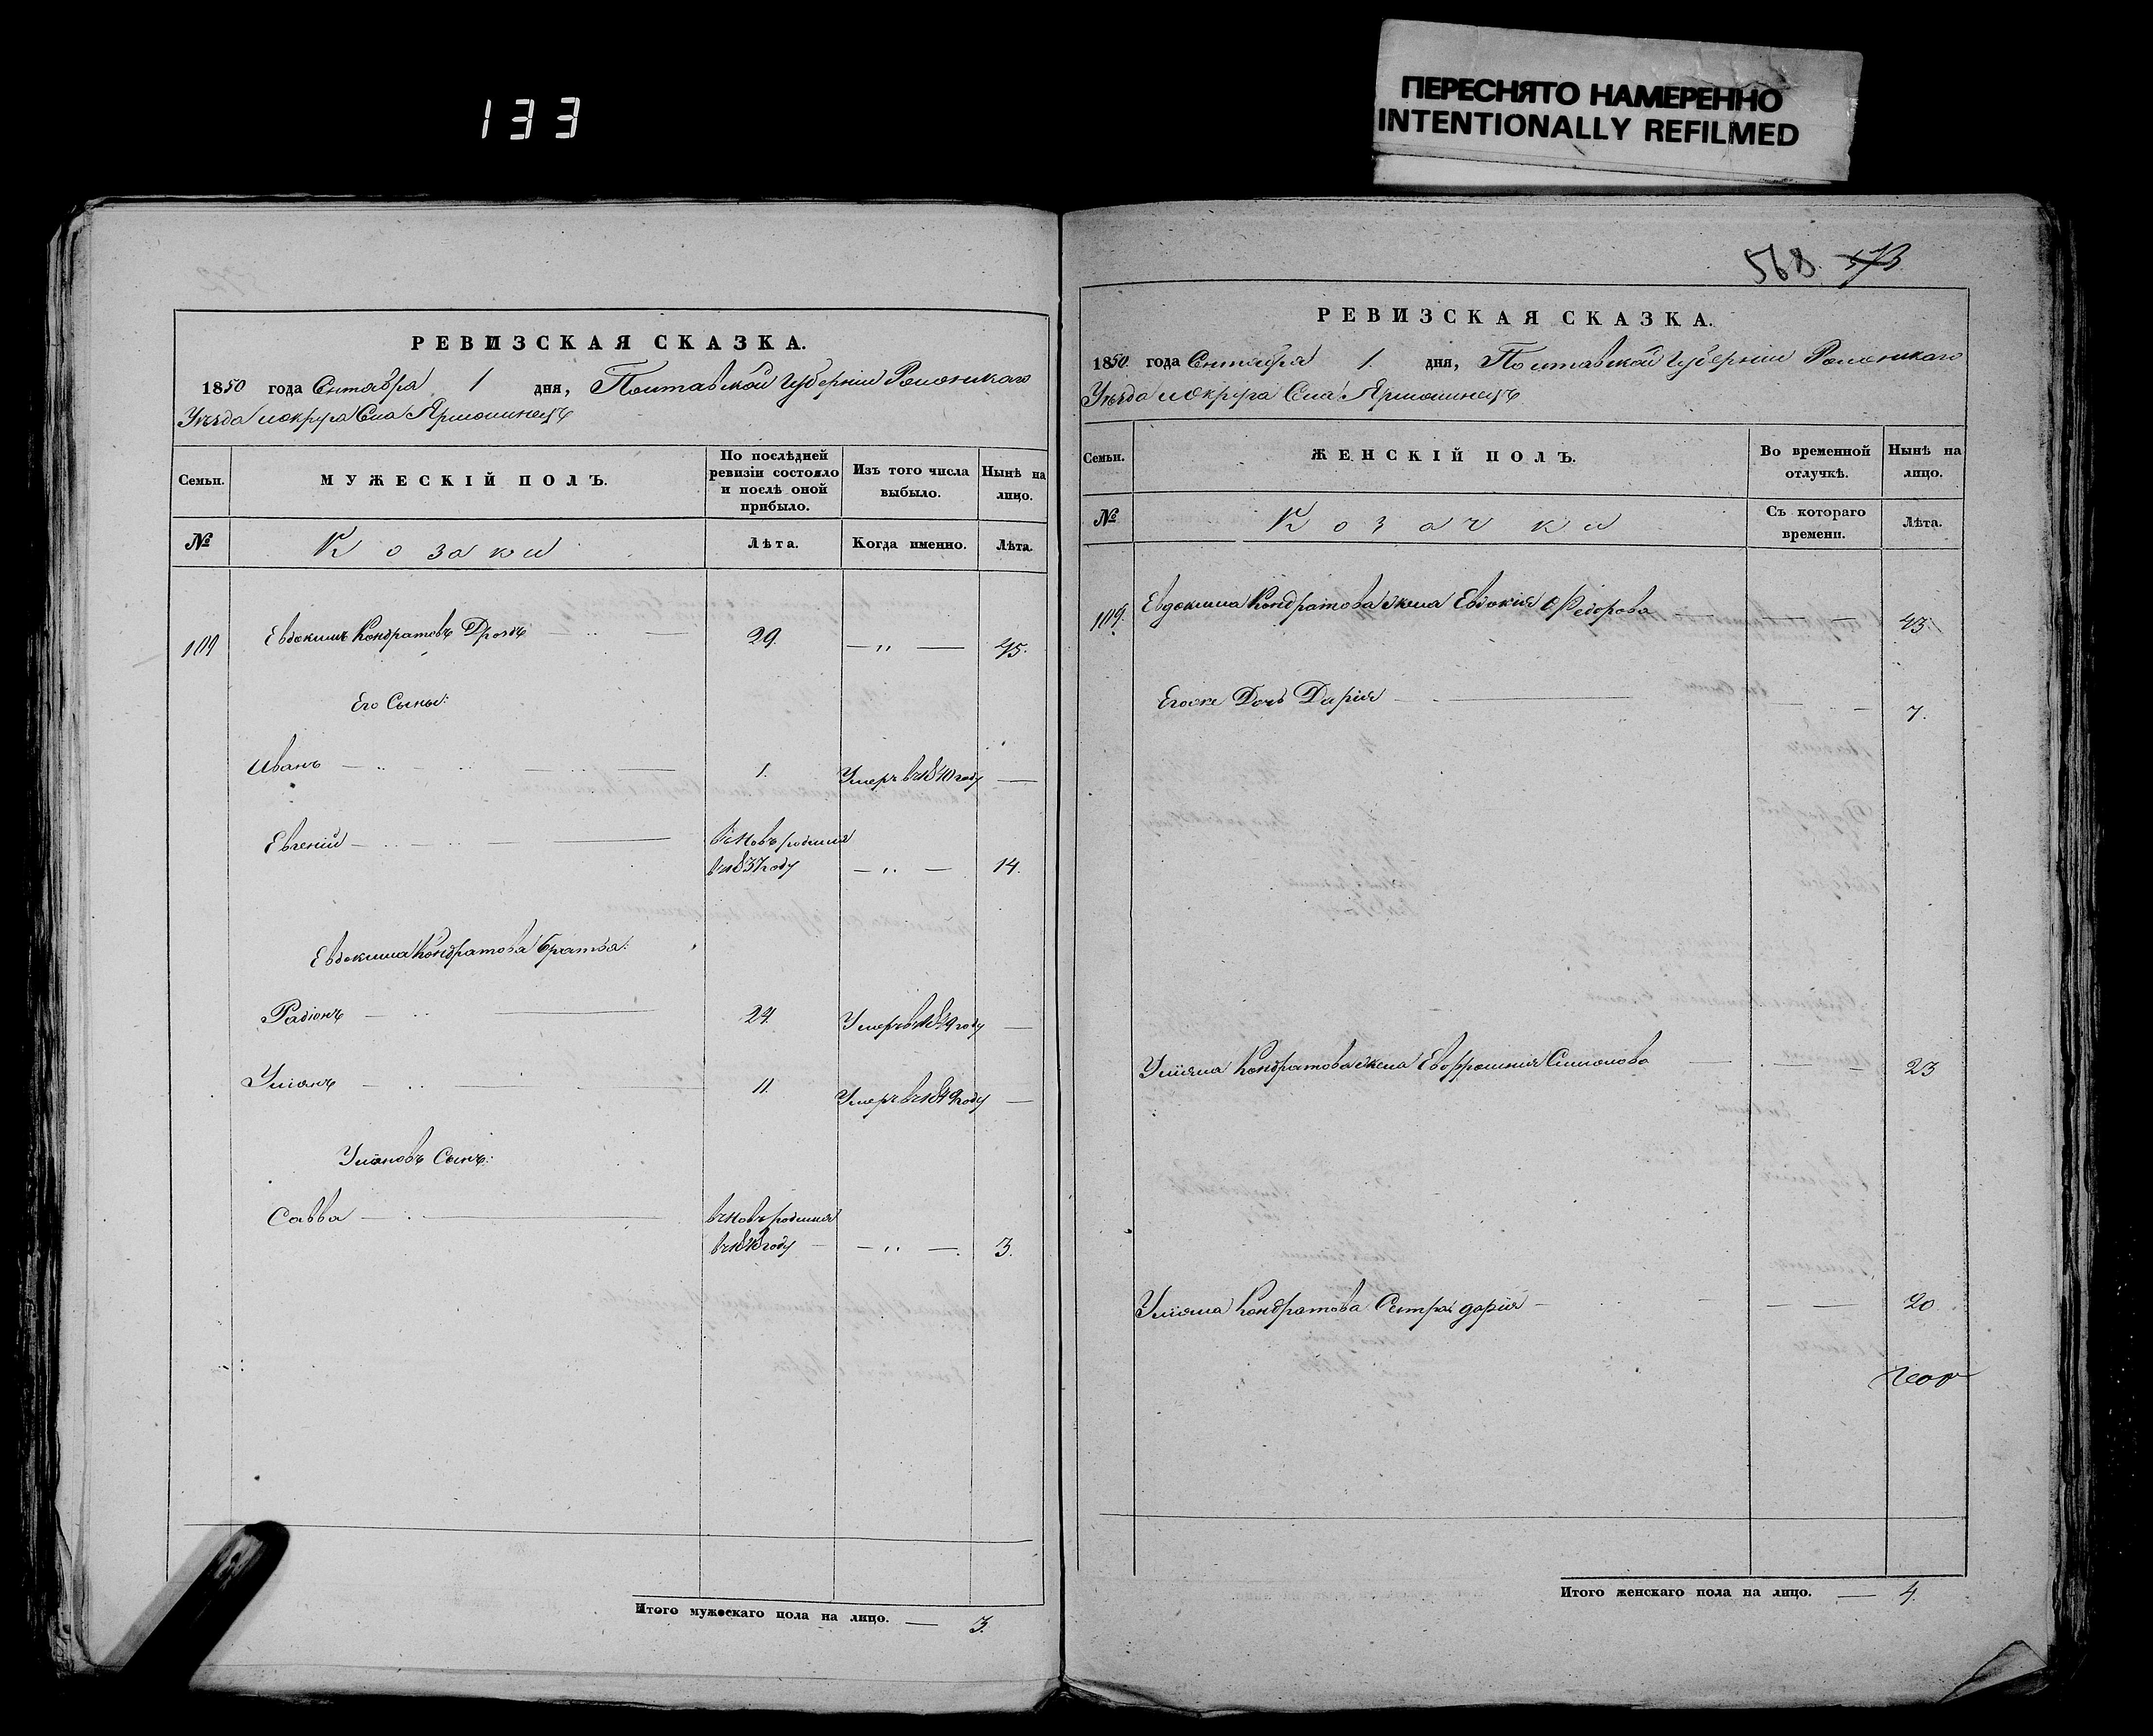 133
ПЕРЕСНЯТО НАМЕРЕННО
INTENTIONALLY REFILMED
РЕВИЗСКАЯ СКАЗКА.
1850 года Сентября 1 дня, Полтавской Губерніи Роменскаго
Уѣзда и округа Села Ярмолинецъ
Семьи.
МУЖЕСКІЙ ПОЛЪ.
По послѣдней ревизіи состояло и послѣ оной прибыло.
Изъ того числа выбыло.
Нынѣ на лицо.
№
Козаки
Лѣта.
Когда именно.
Лѣта.
109 Евдокимъ Кондратовъ Дроздъ 29. — " — 45.
Его Сыны:
Иванъ 1. Умеръ въ 1840 году —
Евгеній вновь родился
въ 1837 году — " — 14.
Евдокима Кондратова братья:
Радіонъ 24. Умеръ въ 1849 году —
Уліянъ 11. Умеръ въ 1849 году —
Уліяновъ Сынъ:
Савва вновь родился
въ 1848 году — " — 3.
Итого мужескаго пола на лицо. — 3.
568. 573
РЕВИЗСКАЯ СКАЗКА.
1850 года Сентября 1. дня, Полтавской Губерніи Роменскаго
Уѣзда и Округа Села Ярмолинецъ
Семьи.
ЖЕНСКІЙ ПОЛЪ.
Во временной отлучкѣ.
Нынѣ на лицо.
№
Козачки
Съ котораго времени.
Лѣта.
109. Евдокима Кондратова жена Евдокия Федорова — 43.
Егоже Дочь Дарія — 7.
Уліяна Кондратова жена Евфросинія Симонова — 23
Уліяна Кондратова Сестра дарія — — 20
Итого женскаго пола на лицо. — 4.